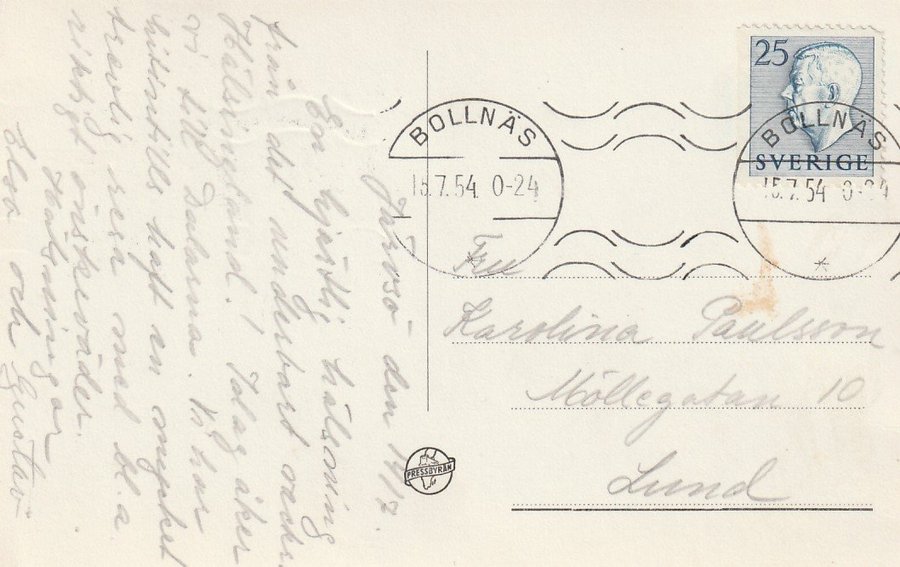 Järvsö den 14/7.
En hjärtlig hälsning
från det underbart vackra
Hälsingland! Idag åker
vi till Dalarna. Vi har
hittills haft en mycket
trevlig resa med bl. a.
riktigt önskeväder.
Hälsningar
Elsa och Gustav
BOLLNÄS
15.7.54 0-24
25
SVERIGE
BOLLNÄS
15.7.54 0-24
Fru
Karolina Paulsson
Möllegatan 10
Lund
PRESSBYRÅN